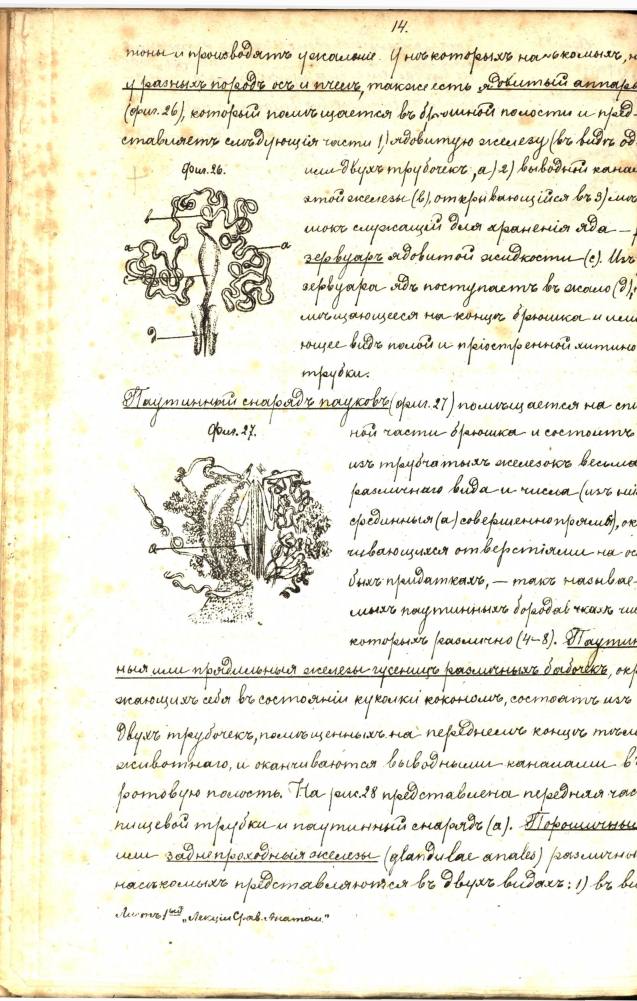 14.
тоны и производятъ ужаленіе. У нѣкоторыхъ насѣкомыхъ, н
у разныхъ породъ осъ и пчелъ, также есть ядовитый аппара
(фиг. 26), который помѣщается въ брюшной полости и пред-
ставляетъ слѣдующія части 1) ядовитую железу (въ видѣ од
Фиг. 26.
или двухъ трубочекъ, а) 2) выводный кана
этой железы (в), открывающійся въ 3) мѣ
мокъ служащій для храненія яда —
зервуаръ ядовитой жидкости (с). Изъ
зервуара ядъ поступаетъ въ жало (д),
мѣщающееся на концѣ брюшка и имѣ
ющее видъ полой и пріостренной хитино
трубки.
в
а
а
с
д
Паутинный снарядъ пауковъ (фиг. 27) помѣщается на спи
Фиг. 27.
ной части брюшка и состоитъ
изъ трубчатыхъ железокъ весьма
различнаго вида и числа (изъ ни
срединныя (а) совершенно прямыя), ок
чивающихся отверстіями на ос
быхъ придаткахъ, — такъ называе-
мыхъ паутинныхъ бородавчкахъ чи
которыхъ различно (4-8). Паутин
а
ныя или прядильныя железы гусеницъ различныхъ бабочекъ, окр
жающихъ себя въ состояніи куколки кокономъ, состоятъ изъ
двухъ трубочекъ, помѣщенныхъ на переднемъ концѣ тѣла
животнаго, и оканчиваются выводными каналами въ
ротовую полость. На рис. 28 представлена передняя час
пищевой трубки и паутинный снарядъ (а). Порошичныя
или заднепроходныя железы (glandulae anales) различны
насѣкомыхъ представляются въ двухъ видахъ: 1) въ ви
Листъ 1ый „Лекціи Срав. Анатом."